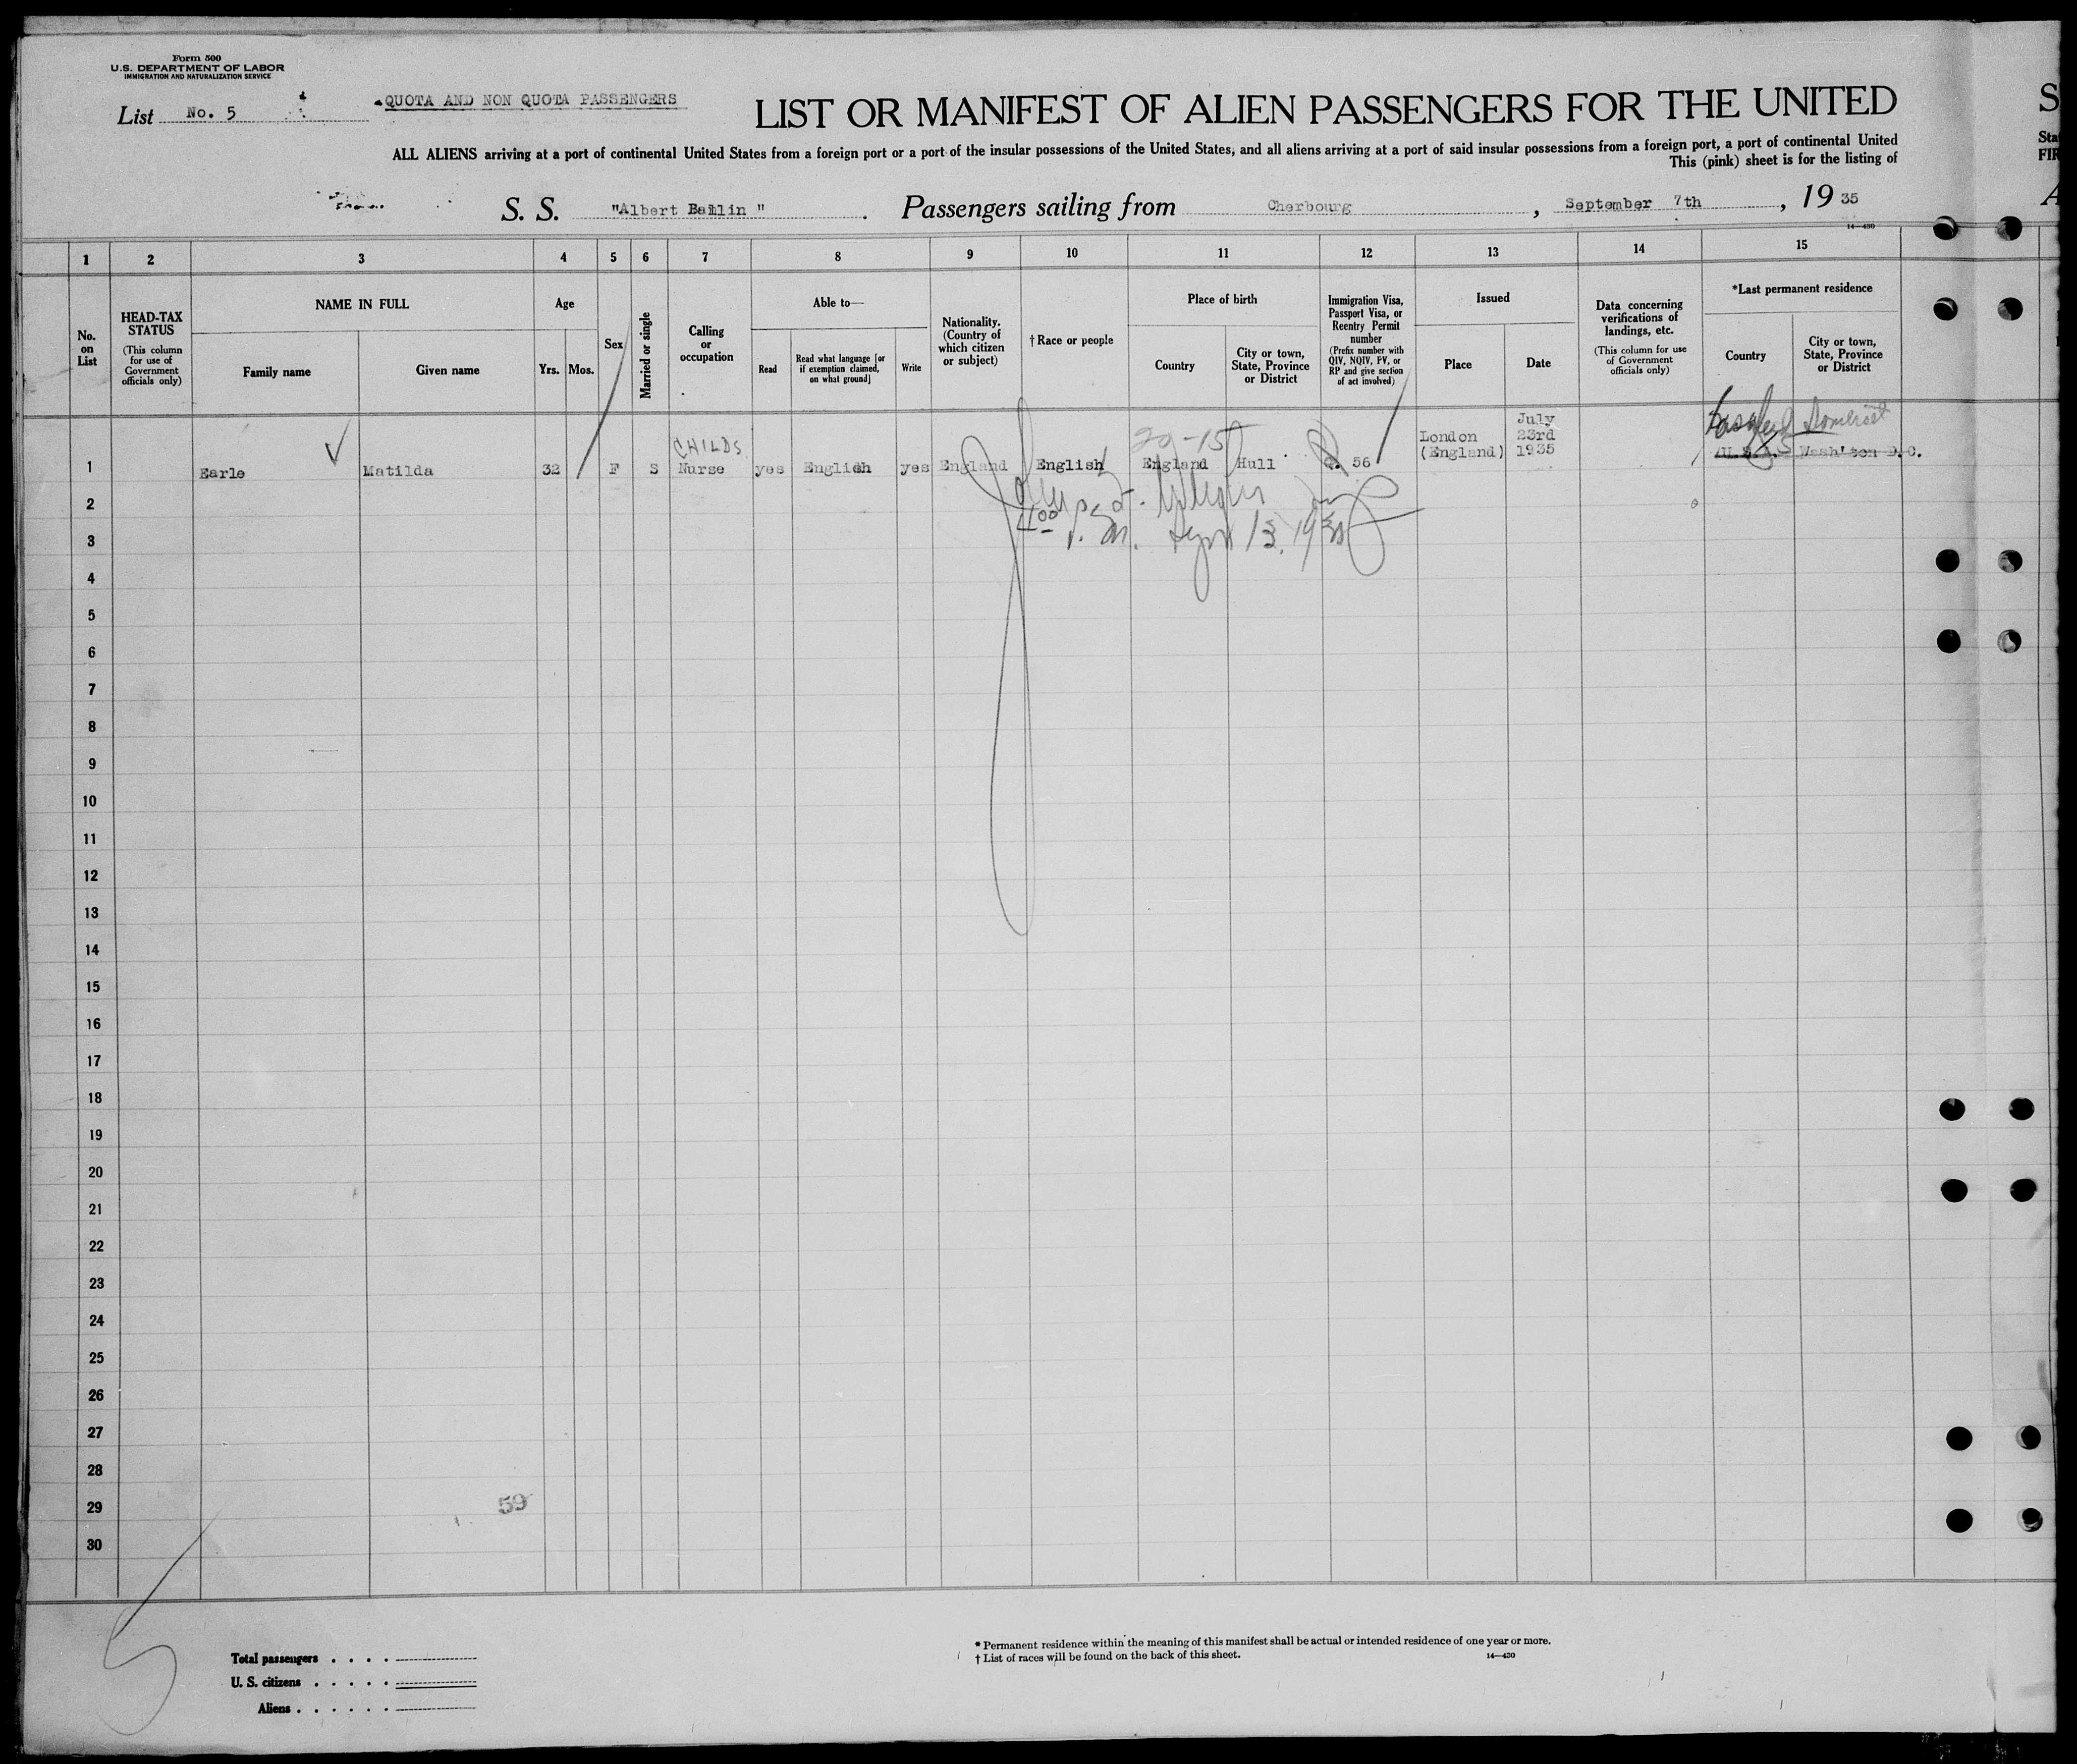 Form 500
U.S. DEPARTMENT OF LABOR
IMMIGRATION AND NATURALIZATION SERVICE
List No. 5
QUOTA AND NON QUOTA PASSENGERS
LIST OR MANIFEST OF ALIEN PASSENGERS FOR THE UNITED
S
ALL ALIENS arriving at a port of continental United States from a foreign port or a port of the insular possessions of the United States, and all aliens arriving at a port of said insular possessions from a foreign port, a port of continental United
Sta
This (pink) sheet is for the listing of
FIR
S. S. "Albert Ballin" . Passengers sailing from Cherbourg , September 7th , 1935
A
14—430
1 2 3 4 5 6 7 8 9 10 11 12 13 14 15
No. on List
HEAD-TAX STATUS
(This column for use of Government officials only)
NAME IN FULL
Family name
Given name
Age
Yrs.
Mos.
Sex
Married or single
Calling or occupation
Able to—
Read
Read what language [or if exemption claimed, on what ground]
Write
Nationality. (Country of which citizen or subject)
† Race or people
Place of birth
Country
City or town, State, Province or District
Immigration Visa, Passport Visa, or Reentry Permit number
(Prefix number with QIV, NQIV, PV, or RP and give section of act involved)
Issued
Place
Date
Data concerning verifications of landings, etc.
(This column for use of Government officials only)
*Last permanent residence
Country
City or town, State, Province or District
Somerset
20-15
CHILDS
1 Earle Matilda 32 F S Nurse yes English yes England English England Hull Q. 56 London (England) July 23rd 1935 U.S.A. Wash'ton D.C.
2
3
4
5
6
7
8
9
10
11
12
13
14
15
16
17
18
19
20
21
22
23
24
25
26
27
28
29
59
30
5
Total passengers . . . .
U. S. citizens . . . . .
Aliens . . . . . .
* Permanent residence within the meaning of this manifest shall be actual or intended residence of one year or more.
† List of races will be found on the back of this sheet.
14—430